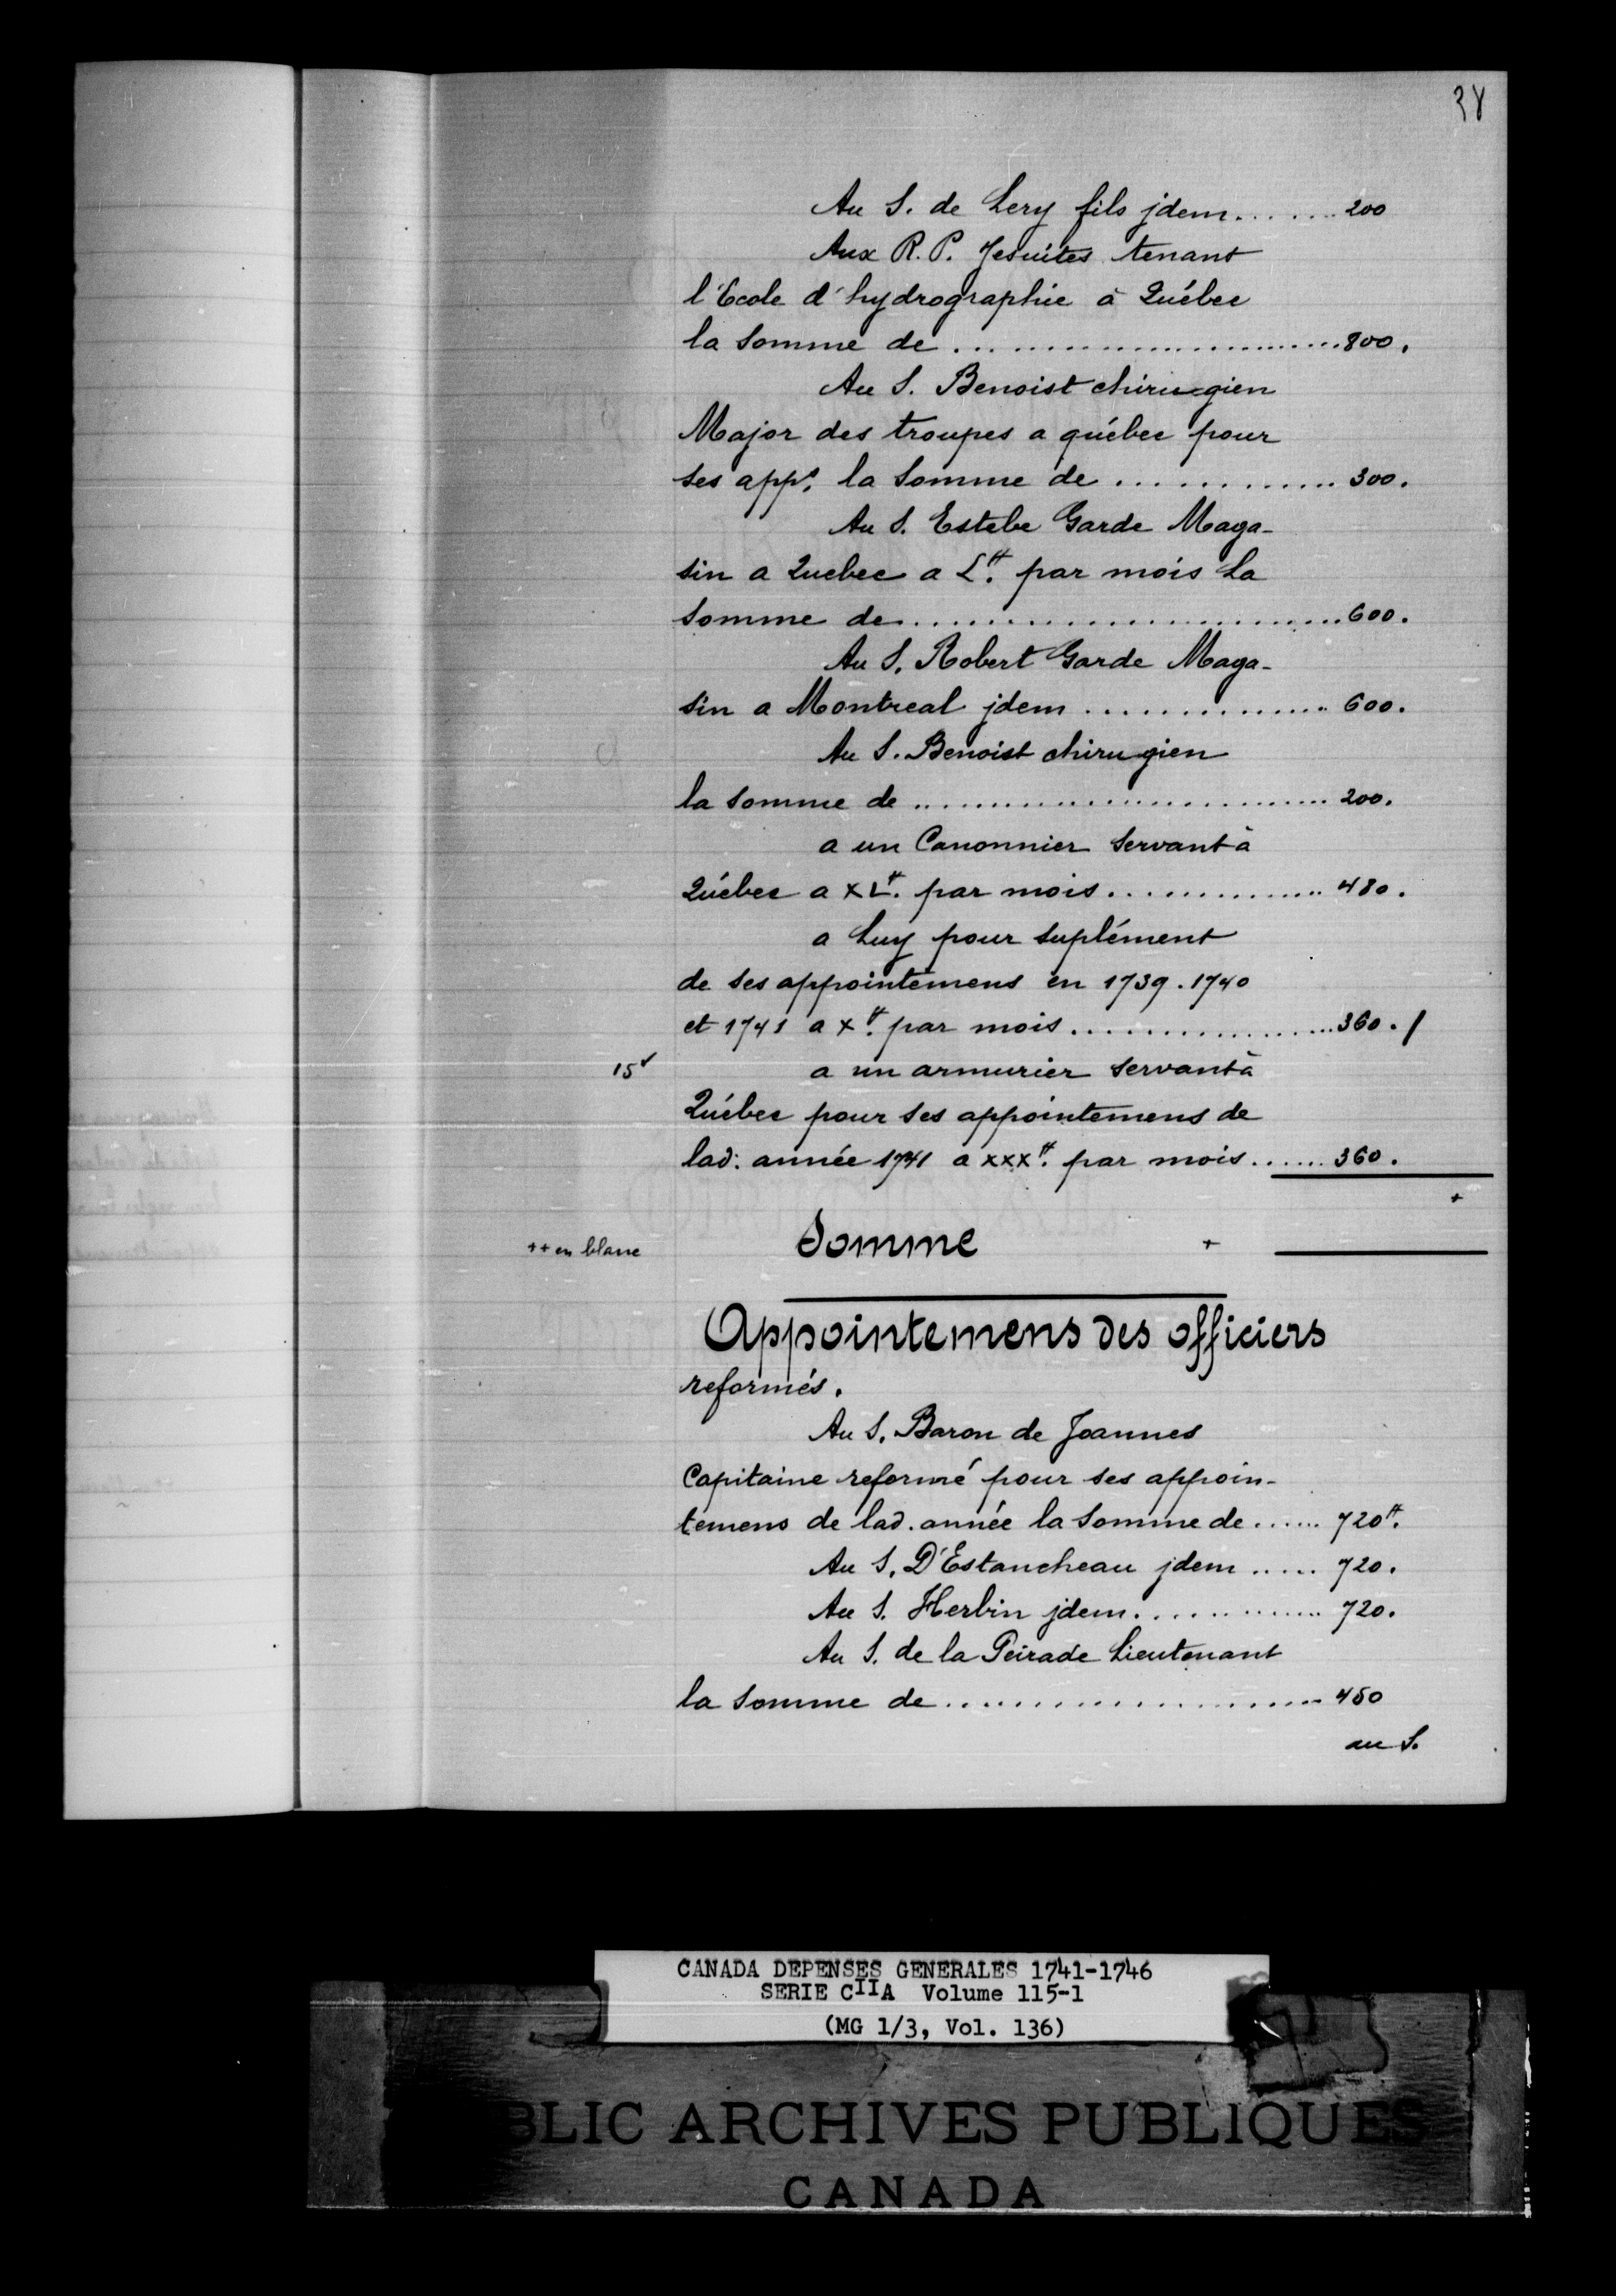 38
Au S. de Lery fils jdem....... 200
Aux R. P. Jesuites tenant
l'Ecole d'hydrographie à Québec
la somme de ........................ 800.
Au S. Benoist chirurgien
Major des troupes a québec pour
ses app.s la somme de ............. 300.
Au S. Estebe Garde Maga-
sin a Quebec a L.# par mois la
somme de ........................... 600.
Au S. Robert Garde Maga-
sin a Montreal jdem ............... 600.
Au S. Benoist chirugien
la somme de .......................... 200.
a un Canonnier servant à
Québec a XL.# par mois.............. 480.
a Luy pour suplément
de ses appointemens en 1739. 1740
et 1741 a X.# par mois................. 360. /
15
a un armurier servant à
Québec pour ses appointemens de
lad: année 1741 a XXX.# par mois....... 360.
+
++ en blanc
Somme +
Appointemens des officiers
reformés.
Au S. Baron de Joannes
Capitaine reformé pour ses appoin-
temens de lad. année la somme de...... 720.#
Au S. D'Estancheau jdem ..... 720.
Au S. Herbin jdem............. 720.
Au S. de la Peirade Lieutenant
la somme de ....................... 450
au S.
CANADA DEPENSES GENERALES 1741-1746
SERIE CIIA Volume 115-1
(MG 1/3, Vol. 136)
BLIC ARCHIVES PUBLIQUES
CANADA